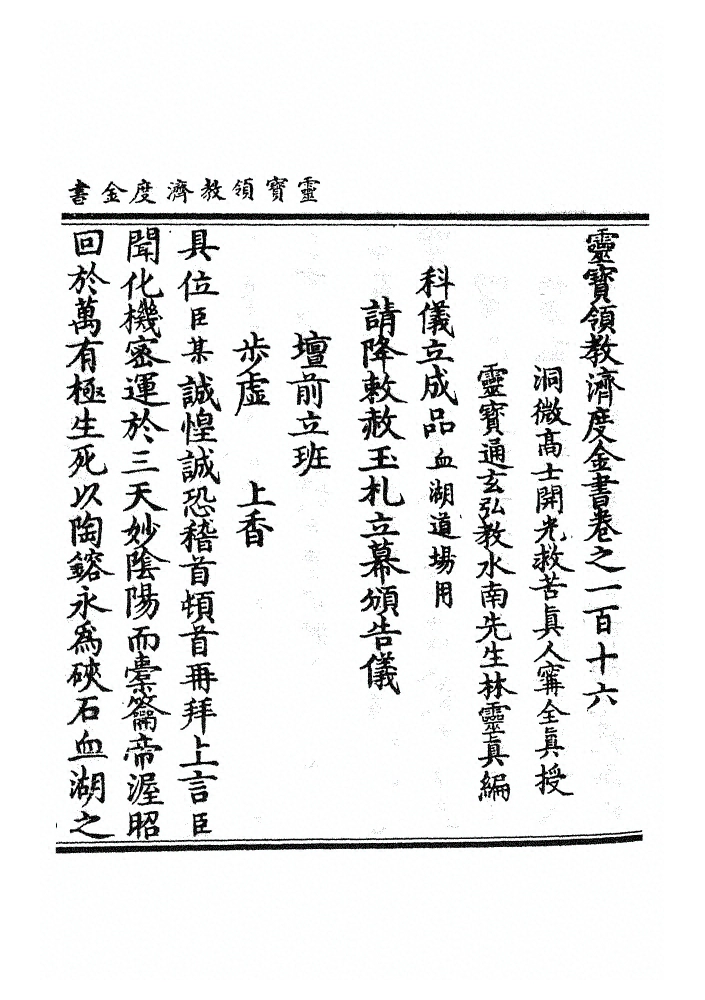 靈寶領教濟度金書
靈寶領教濟度金書卷之一百十六
洞微高士開光救苦眞人甯全眞授
靈寶通玄弘教水南先生林靈眞編
科儀立成品血湖道場用
請降敕赦玉札立幕頒告儀
壇前立班
步虛 上香
具位臣某誠惶誠恐稽首頓首再拜上言臣
聞化機密運於三天妙陰陽而橐籥帝渥昭
回於萬有極生死以陶鎔永爲硤石血湖之